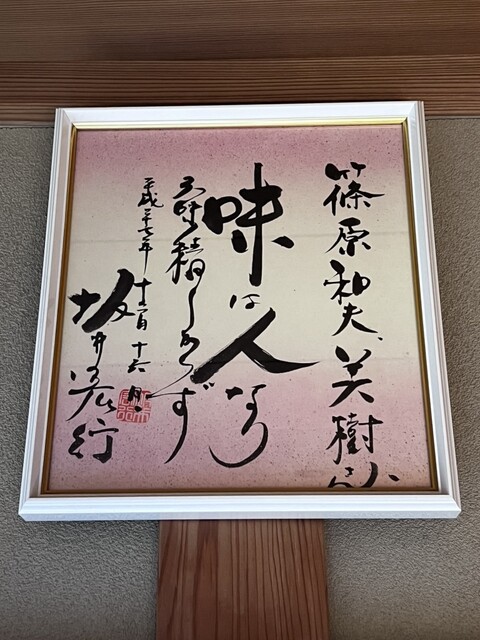 篠原和夫、美樹さん江
味は人なり
平成二十七年 十二月 十六日
坂井宏行